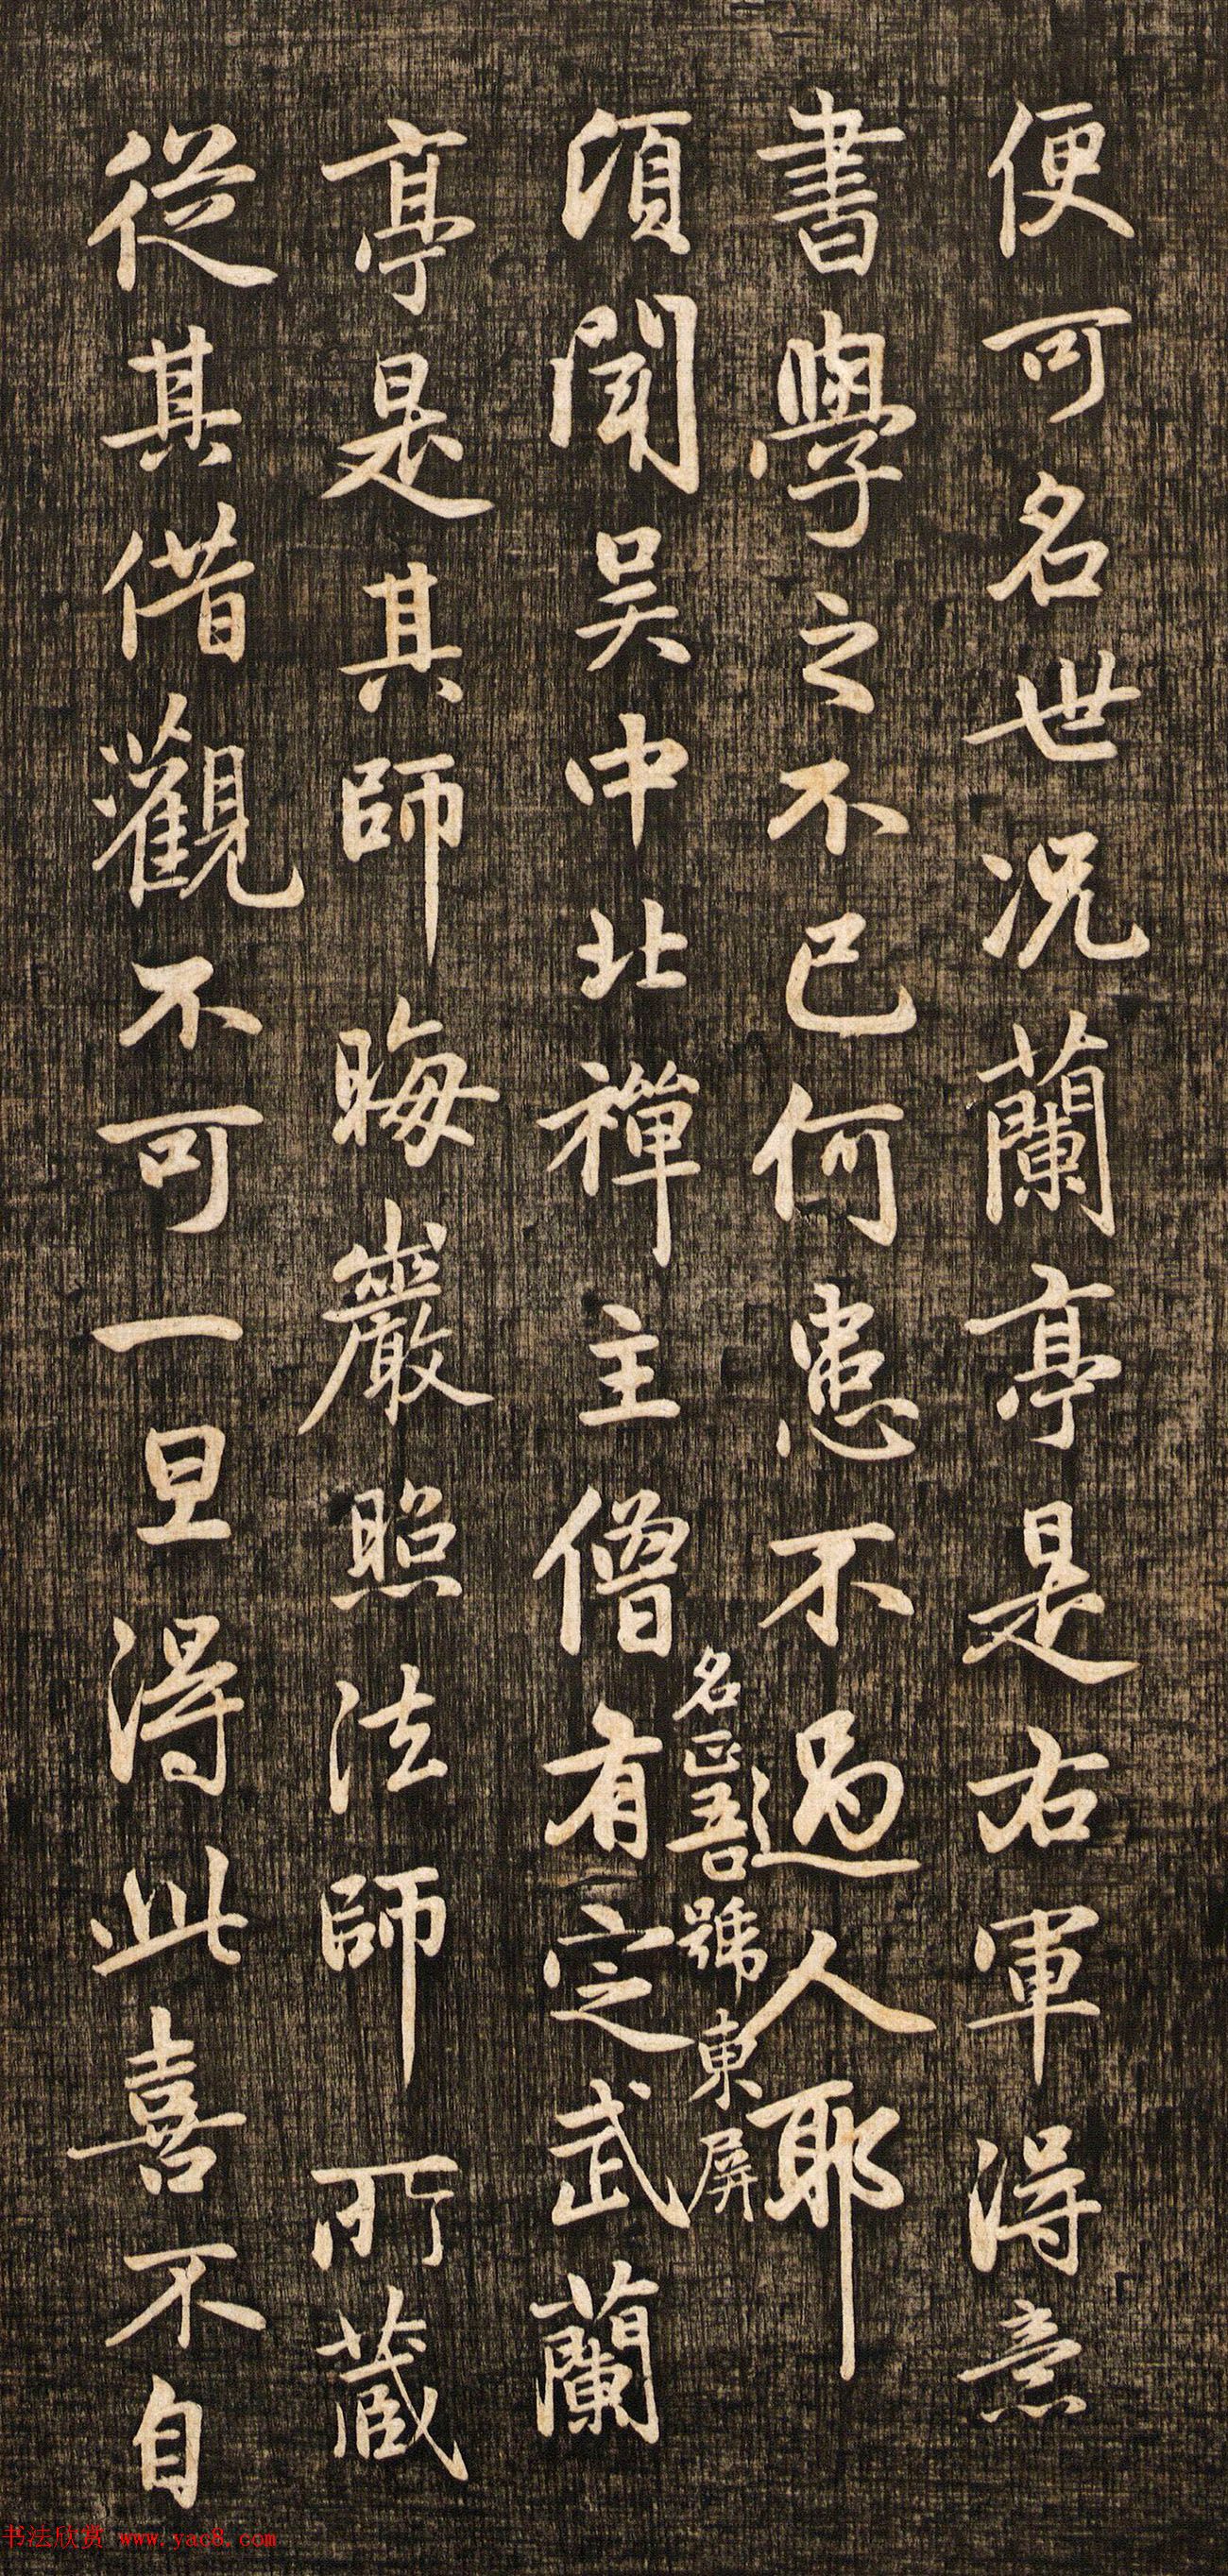 便可名世况蘭亭是右軍得意
書學之不已何患不過人耶
須聞吳中北禪主僧有定武蘭
名正吾號東屏
亭是其師晦巖照法師所藏
從其借觀不可一旦得此喜不自
书法欣赏 www.yac8.com